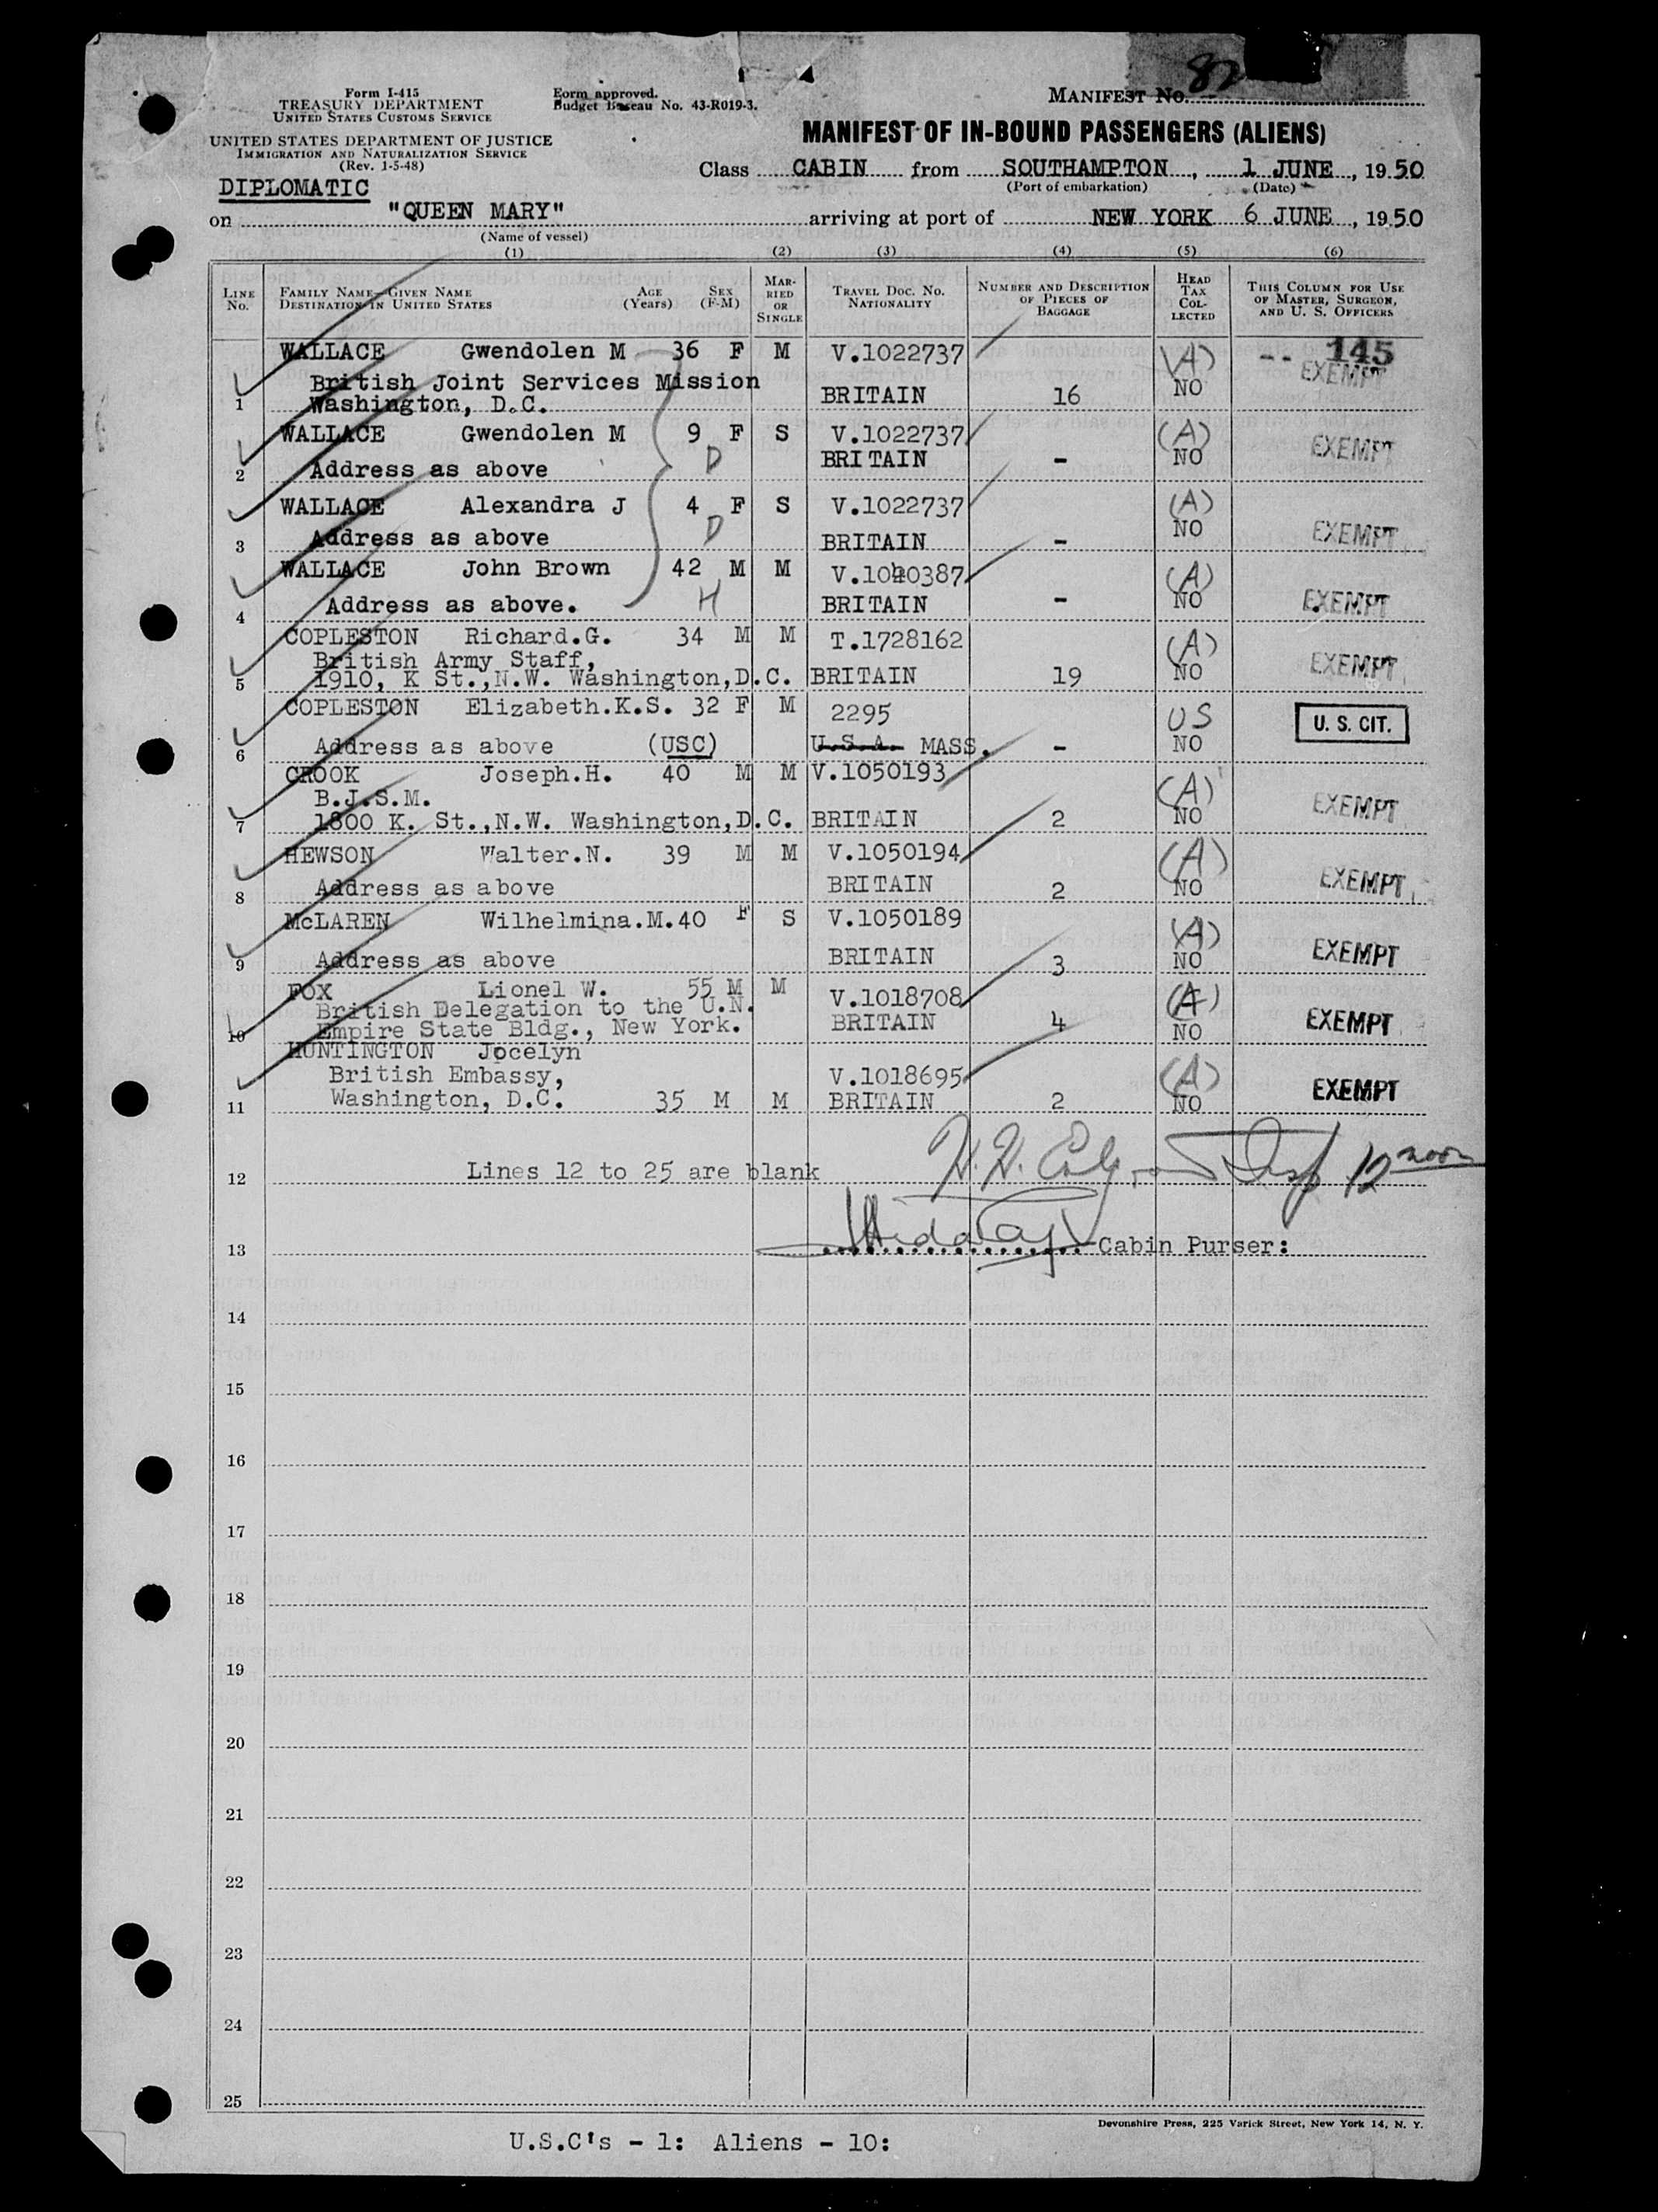 Form I-415
TREASURY DEPARTMENT
UNITED STATES CUSTOMS SERVICE
UNITED STATES DEPARTMENT OF JUSTICE
IMMIGRATION AND NATURALIZATION SERVICE
(Rev. 1-5-48)
Form approved.
Budget Bureau No. 43-R019-3.
MANIFEST No. 82
MANIFEST OF IN-BOUND PASSENGERS (ALIENS)
Class CABIN from SOUTHAMPTON, 1 JUNE, 1950
(Port of embarkation) (Date)
DIPLOMATIC
on "QUEEN MARY" arriving at port of NEW YORK 6 JUNE, 1950
(Name of vessel)
(1) (2) (3) (4) (5) (6)
LINE No.
FAMILY NAME—GIVEN NAME
DESTINATION IN UNITED STATES
AGE (Years)
SEX (F-M)
MARRIED OR SINGLE
TRAVEL DOC. NO. NATIONALITY
NUMBER AND DESCRIPTION OF PIECES OF BAGGAGE
HEAD TAX COLLECTED
THIS COLUMN FOR USE OF MASTER, SURGEON, AND U. S. OFFICERS
WALLACE Gwendolen M 36 F M V.1022737 (A) -- 145
British Joint Services Mission EXEMPT
1 Washington, D.C. BRITAIN 16 NO
WALLACE Gwendolen M 9 F S V.1022737 (A)
2 Address as above D BRITAIN - NO EXEMPT
WALLACE Alexandra J 4 F S V.1022737 (A)
3 Address as above D BRITAIN - NO EXEMPT
WALLACE John Brown 42 M M V.1040387 (A)
4 Address as above. H BRITAIN - NO EXEMPT
COPLESTON Richard.G. 34 M M T.1728162 (A)
British Army Staff,
5 1910, K St.,N.W. Washington,D.C. BRITAIN 19 NO EXEMPT
COPLESTON Elizabeth.K.S. 32 F M 2295 US U. S. CIT.
6 Address as above (USC) U.S.A. MASS. - NO
CROOK Joseph.H. 40 M M V.1050193 (A)
B.J.S.M.
7 1800 K. St.,N.W. Washington,D.C. BRITAIN 2 NO EXEMPT
HEWSON Walter.N. 39 M M V.1050194 (A)
8 Address as above BRITAIN 2 NO EXEMPT
McLAREN Wilhelmina.M. 40 F S V.1050189 (A)
9 Address as above BRITAIN 3 NO EXEMPT
FOX Lionel W. 55 M M V.1018708 (A)
British Delegation to the U.N.
10 Empire State Bldg., New York. BRITAIN 4 NO EXEMPT
HUNTINGTON Jocelyn
British Embassy, V.1018695 (A)
11 Washington, D.C. 35 M M BRITAIN 2 NO EXEMPT
12 Lines 12 to 25 are blank 12 noon
13 Cabin Purser:
14
15
16
17
18
19
20
21
22
23
24
25
Devonshire Press, 225 Varick Street, New York 14, N. Y.
U.S.C's - 1: Aliens - 10: